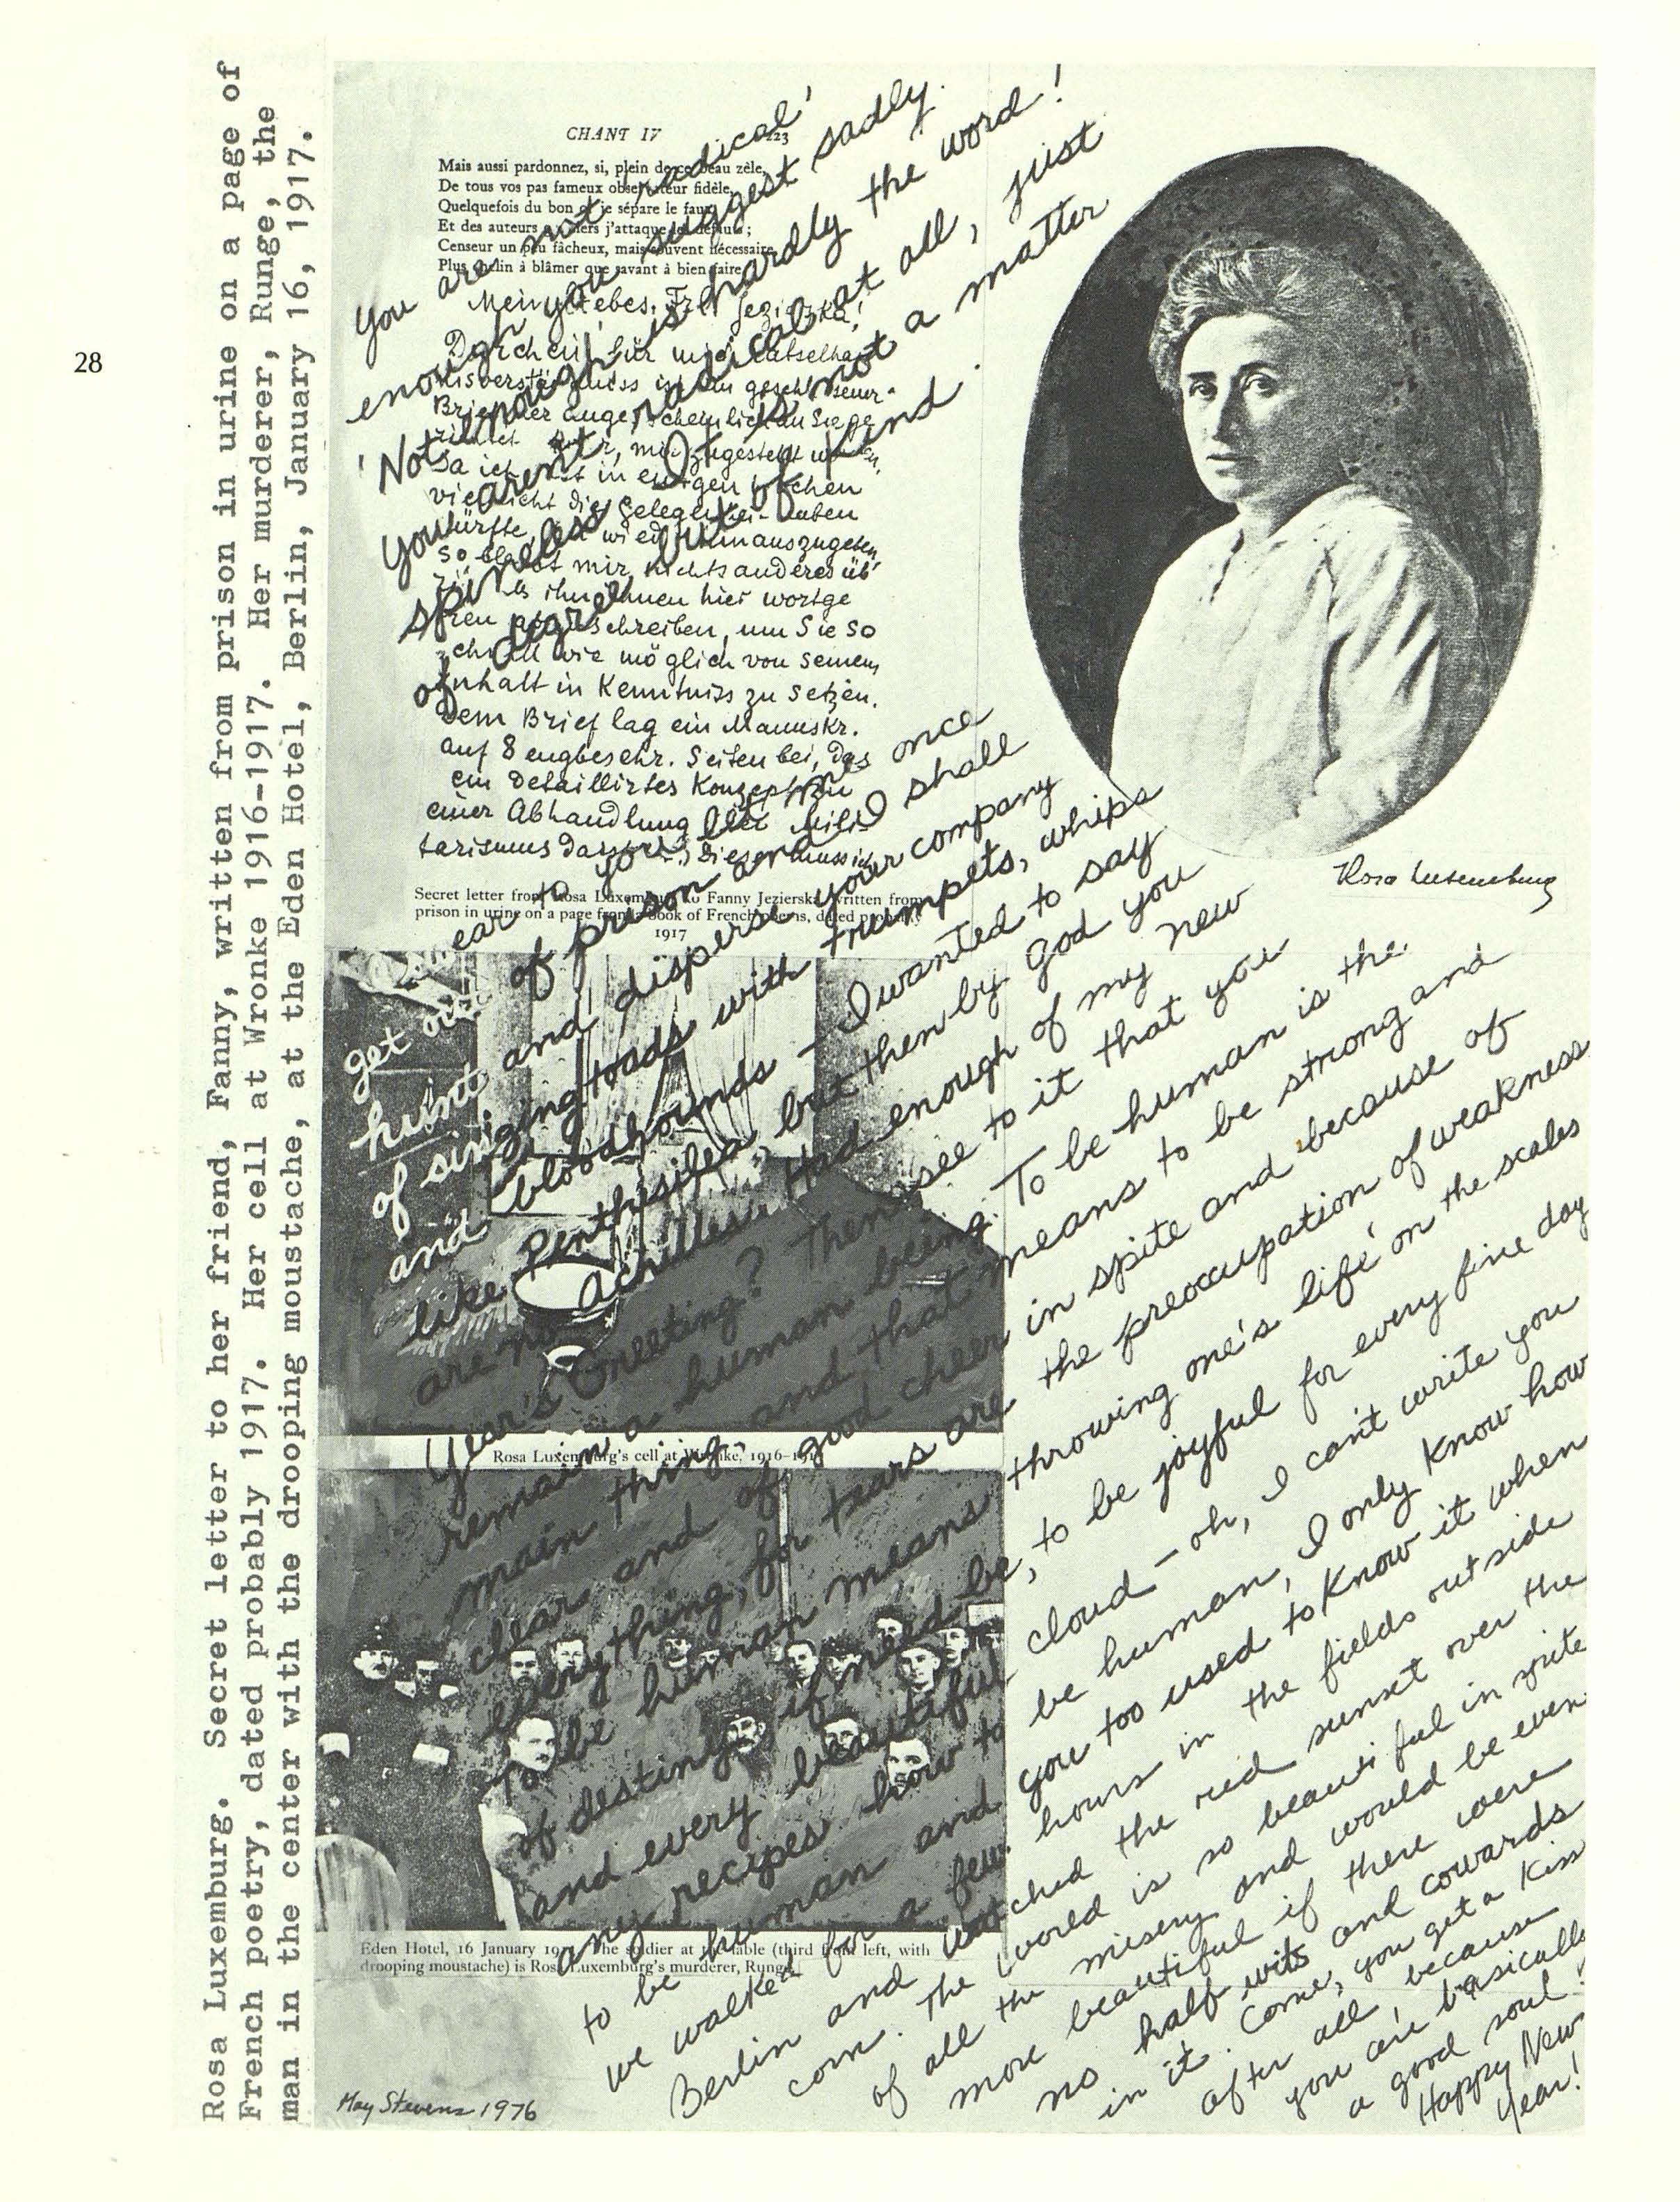 28
Rosa Luxemburg. Secret letter to her friend, Fanny, written from prison in urine on a page of
French poetry, dated probably 1917. Her cell at Wronke 1916-1917. Her murderer, Runge, the
man in the center with the drooping moustache, at the Eden Hotel, Berlin, January 16, 1917.
CHANT IV 223
Mais aussi pardonnez, si, plein de ce beau zèle,
De tous vos pas fameux observateur fidèle,
Quelquefois du bon or je sépare le faux,
Et des auteurs grossiers j'attaque les défauts;
Censeur un peu fâcheux, mais souvent nécessaire,
Plus enclin à blâmer que savant à bien faire.
Mein liebes Frl. Jezierska!
Durch ein für mich rätselhaft
Misverständniss ist ein geschlossener
Brief, der augenscheinlich an Sie ge
mir zugestellt
Da ich erst in einigen Wochen
vielleicht die Gelegenheit haben
dürfte, wieder hinauszugeben
so bleibt mir nichts anderes üb
als ihn Ihnen hier wortge
treu abzuschreiben, um Sie so
schnell wie möglich von seinem
Inhalt in Kenntniss zu setzen.
Dem Brief lag ein Manuskr.
auf 8 engbeschr. Seiten bei, das
ein detaillirtes Konzept zu
einer Abhandlung über Mili
tarismus darstellt. Dieser muss ich
Secret letter from Rosa Luxemburg to Fanny Jezierska, written from
prison in urine on a page from a book of French poems, dated probably
1917
Rosa Luxemburg
Rosa Luxemburg's cell at Wronke, 1916-1917
Eden Hotel, 16 January The soldier at the table (third from left, with
drooping moustache) is Rosa Luxemburg's murderer, Runge
You are not radical'
enough you suggest sadly.
'Not enough' is hardly the word!
You aren't radical at all, just
spineless. It is not a matter
of degree but of kind.
ear to you let me once
get out of prison and I shall
hunt and disperse your company
of singing toads with trumpets, whips
and bloodhounds - I wanted to say
like Penthisilea, but then by God you
are no Achilles. Had enough of my new
Year's Greeting? Then see to it that you
remain a human being. To be human is the
main thing, and that means to be strong and
clear and of good cheer in spite and because of
everything, for tears are the preoccupation of weakness
To be human means throwing one's life 'on the scales
of destiny' if need be, to be joyful for every fine day
and every beautiful cloud - oh, I can't write you
any recipes how to be human, I only know how
to be human and you too used to know it when
we walked for a few hours in the fields outside
Berlin and watched the red sunset over the
corn. The world is so beautiful in spite
of all the misery and would be even
more beautiful if there were
no half wits and cowards
in it. Come, you get a kiss
after all, because
you are basically
a good soul!
Happy New
Year!
May Stevens 1976